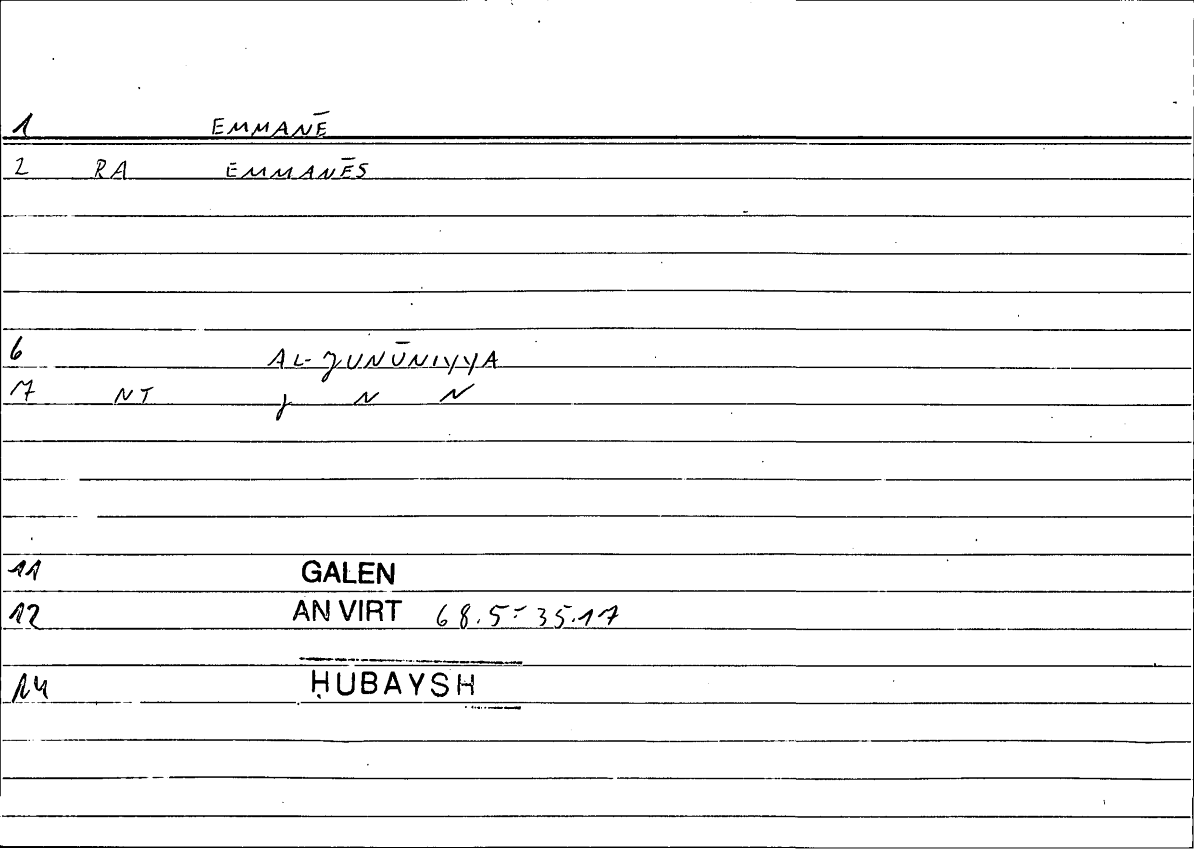 1 EMMANĒ
2 RA EMMANĒS
6 AL-JUNŪNIYYA
7 NT J N N
11 GALEN
12 AN VIRT 68.5 = 35.17
14 ḤUBAYSH